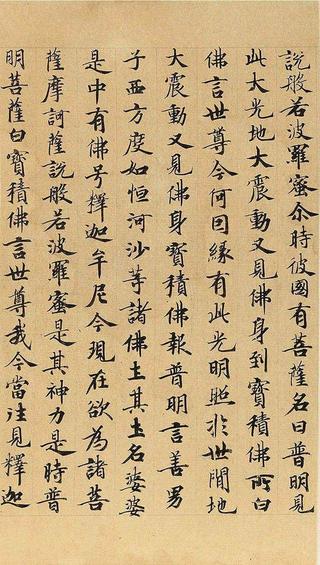 說般若波羅蜜尒時彼國有菩薩名曰普明見
此大光地大震動又見佛身到寶積佛所白
佛言世尊今何因緣有此光明照於世間地
大震動又見佛身寶積佛報普明言善男
子西方度如恒河沙等諸佛土其土名婆婆
是中有佛号釋迦牟尼今現在欲為諸菩
薩摩訶薩說般若波羅蜜是其神力是時普
明菩薩白寶積佛言世尊我今當往見釋迦